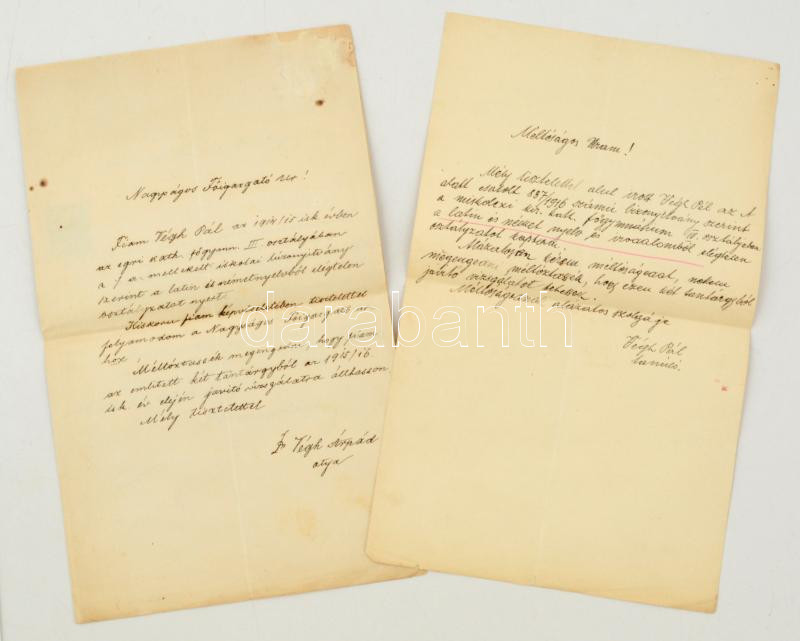 Nagyságos Főigazgató Úr!
Fiam Végh Pál az 1914/15 isk. évben
az egri kath. főgymn. III. osztályában
a ./. a. mellékelt iskolai bizonyítvány
szerint a latin és német nyelvből elégtelen
osztályzatot nyert.
Kiskorú fiam képviseletében tisztelettel
folyamodom a Nagyságos Főigazgató úr
hoz
Méltóztassék megengedni, hogy fiam
az említett két tantárgyból az 1915/16.
isk. év elején javító vizsgálatra állhasson
Mély tisztelettel
Dr Végh Árpád
atya
Méltóságos Uram!
Mély tisztelettel alul írott Végh Pál az A
alatt csatolt 837/1916 számú bizonyítvány szerint
a miskolczi kir. kath. főgymnásium IV. osztályában
a latin és német nyelv és irodalomból elégtelen
osztályzatot kaptam.
Alázatosan kérem méltóságodat, nekem
megengedni méltóztassék, hogy ezen két tantárgyból
javító vizsgálatot tehessek.
Méltóságodnak alázatos szolgája
Végh Pál
tanuló.
darabanth